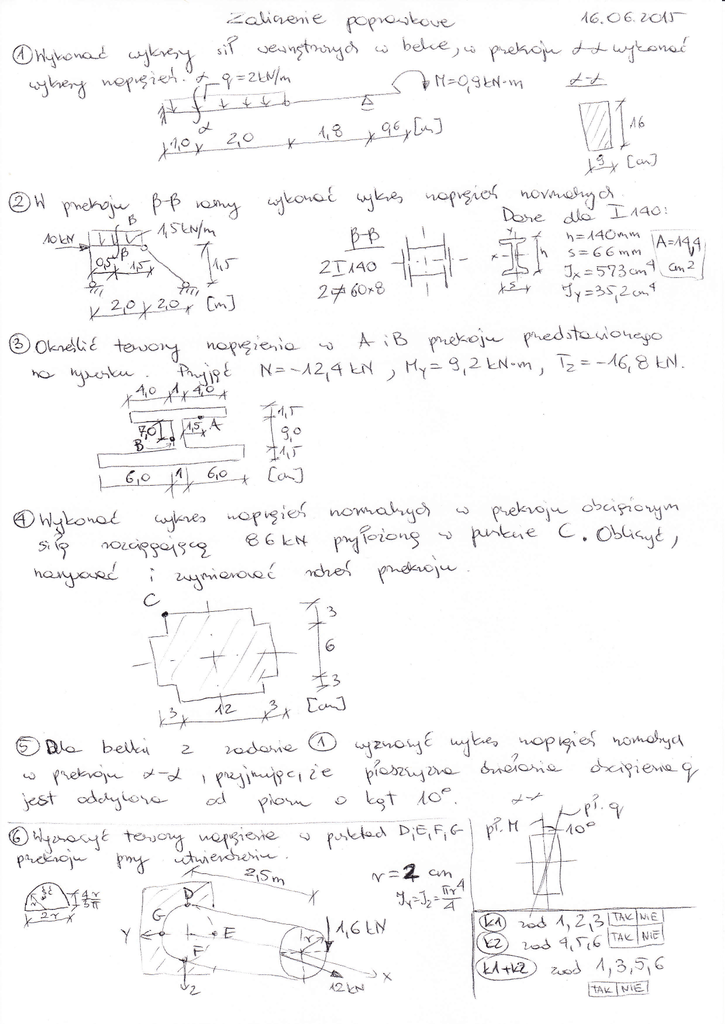 Zaliczenie poprawkowe 16.06.2015
① Wykonać wykresy sił wewnętrznych w belce, w przekroju α-α wykonać
wykresy naprężeń.
α q=2kN/m M=0,9kN·m α-α
α
1,0 2,0 1,8 0,6 [m]
16
9 [cm]
② W przekroju β-β ramy wykonać wykres naprężeń normalnych.
10kN β 1,5kN/m
β
0,5 1,5 1,5
2,0 2,0 [m]
β-β
2 I 140
2 ≠ 60x8
Dane dla I 140:
y x h s
h=140mm
s=66mm
Jx=573cm⁴
Jy=35,2cm⁴
A=18,4 cm²
③ Określić tensory naprężenia w A i B przekroju przedstawionego
na rysunku. Przyjąć N=-12,4kN, My=9,2kN·m, Tz=-16,8kN.
4,0 1 4,0
7,0 1,5 A
B
1,5
9,0
1,5
6,0 1 6,0 [cm]
④ Wykonać wykres naprężeń normalnych w przekroju obciążonym
siłą rozciągającą 86kN przyłożoną w punkcie C. Obliczyć,
narysować i zwymiarować rdzeń przekroju.
C
3
6
3
3 12 3 [cm]
⑤ Dla belki z zadania ① wyznaczyć wykres naprężeń normalnych
w przekroju α-α, przyjmując, że płaszczyzna działania obciążenia q
jest odchylona od pionu o kąt 10°.
α-α
pł. M pł. q
10°
⑥ Wyznaczyć tensory naprężenia w punktach D,E,F,G
przekroju przy utwierdzeniu.
2,5m
r=2 cm
Jy=Jz=πr⁴/4
śc 4r/3π
2r
D
G
Y E
F
Z
r
1,6kN
X
12kN
K1 zad 1,2,3 TAK NIE
K2 zad 4,5,6 TAK NIE
K1+K2 zad 1,3,5,6
TAK NIE